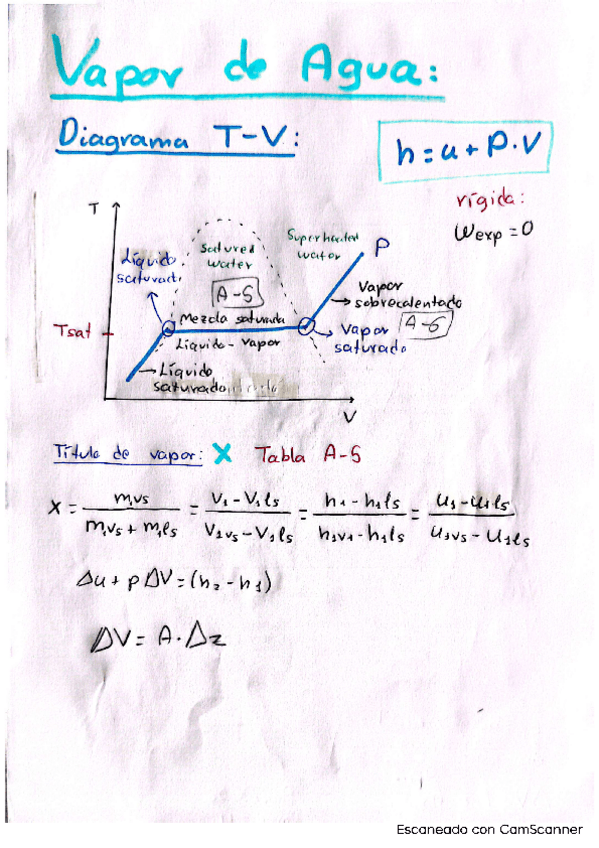 Vapor de Agua:
Diagrama T-V:
h = u + P·V
rígida:
Wexp = 0
T
Líquido saturado
Satured water
A-5
Superheated water
P
Vapor sobrecalentado
Mezcla saturada
Líquido - vapor
Tsat
Vapor saturado
A-6
Líquido saturado
V
Título de vapor: X Tabla A-5
X = m1vs / (m1vs + m1ls) = (V1 - V1ls) / (V1vs - V1ls) = (h1 - h1ls) / (h1v1 - h1ls) = (u1 - u1ls) / (u1vs - u1ls)
Δu + pΔV = (h2 - h1)
ΔV = A·Δz
Escaneado con CamScanner